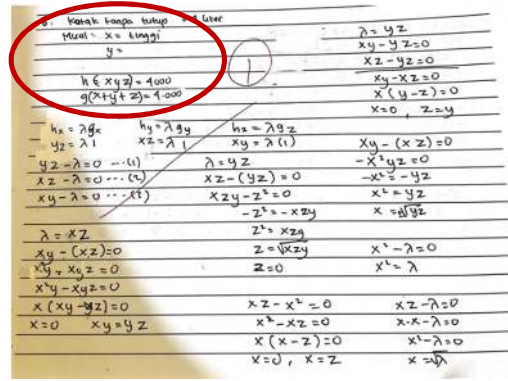 Kotak tanpa tutup = 4 liter
Misal = x = tinggi
y =
h(xyz) = 4000
g(x+y+z) = 4.000
1
hx = λgx hy = λgy hz = λgz
yz = λ1 xz = λ1 xy = λ(1)
yz - λ = 0 ...(1)
xz - λ = 0 ...(2)
xy - λ = 0 ...(3)
λ = xz
xy - (xz) = 0
x²y - xyz = 0
x²y - xyz = 0
x (xy - yz) = 0
x = 0 xy = yz
λ = yz
xz - (yz) = 0
xzy - z² = 0
-z² = -xzy
z² = xzy
z = √xzy
z = 0
xz - x² = 0
x² - xz = 0
x (x - z) = 0
x = 0, x = z
λ = yz
xy - yz = 0
xz - yz = 0
xy - xz = 0
x (y - z) = 0
x = 0, z = y
xy - (xz) = 0
-x²yz = 0
-x² = -yz
x² = yz
x = √yz
x² - λ = 0
x² = λ
xz - λ = 0
x·x - λ = 0
x² - λ = 0
x = √λ